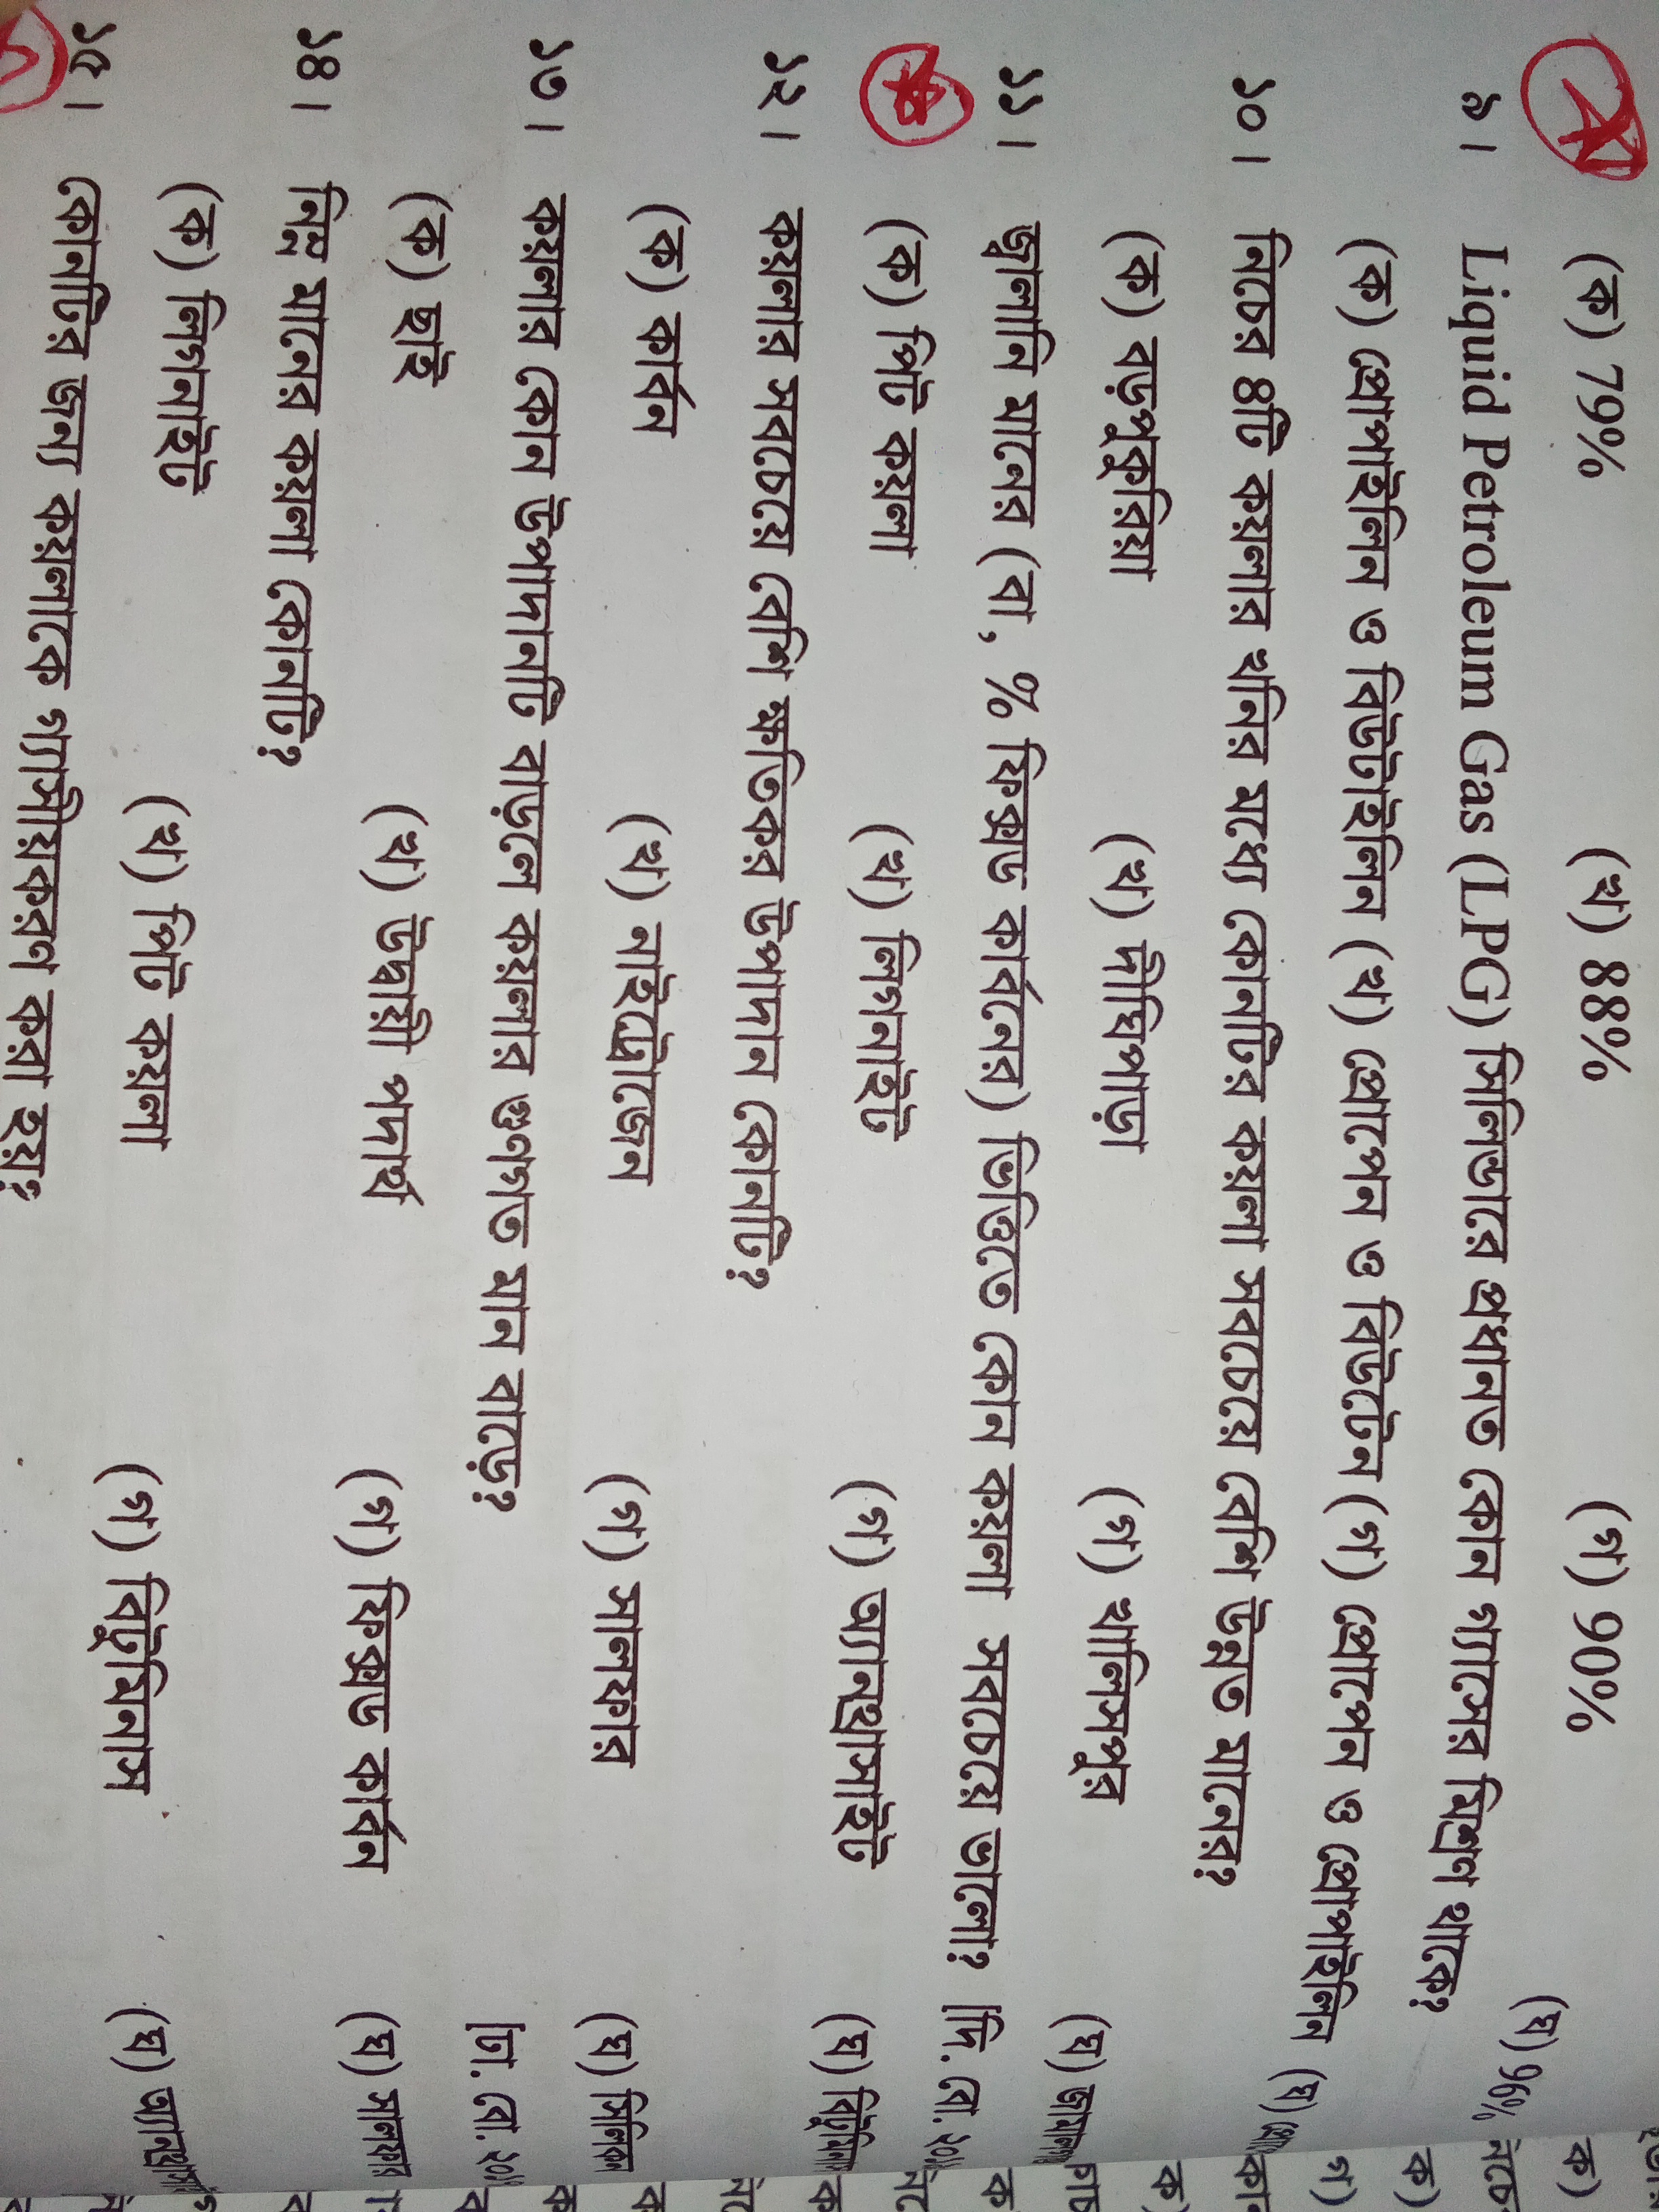 (ক) 79% (খ) 88% (গ) 90% (ঘ) 96%
৯। Liquid Petroleum Gas (LPG) সিলিন্ডারে প্রধানত কোন গ্যাসের মিশ্রণ থাকে?
(ক) প্রোপাইলিন ও বিউটাইলিন (খ) প্রোপেন ও বিউটেন (গ) প্রোপেন ও প্রোপাইলিন (ঘ)
১০। নিচের ৪টি কয়লার খনির মধ্যে কোনটির কয়লা সবচেয়ে বেশি উন্নত মানের?
(ক) বড়পুকুরিয়া (খ) দীঘিপাড়া (গ) খালিসপুর (ঘ)
১১। জ্বালানি মানের (বা, % ফিক্সড কার্বনের) ভিত্তিতে কোন কয়লা সবচেয়ে ভালো? [দি. বো.
(ক) পিট কয়লা (খ) লিগনাইট (গ) অ্যানথ্রাসাইট (ঘ)
১২। কয়লার সবচেয়ে বেশি ক্ষতিকর উপাদান কোনটি?
(ক) কার্বন (খ) নাইট্রোজেন (গ) সালফার (ঘ) সিলিকন
১৩। কয়লার কোন উপাদানটি বাড়লে কয়লার গুণগত মান বাড়ে? [ঢা. বো.
(ক) ছাই (খ) উদ্বায়ী পদার্থ (গ) ফিক্সড কার্বন (ঘ) সালফার
১৪। নিম্ন মানের কয়লা কোনটি?
(ক) লিগনাইট (খ) পিট কয়লা (গ) বিটুমিনাস (ঘ)
১৫। কোনটির জন্য কয়লাকে গ্যাসীয়করণ করা হয়?